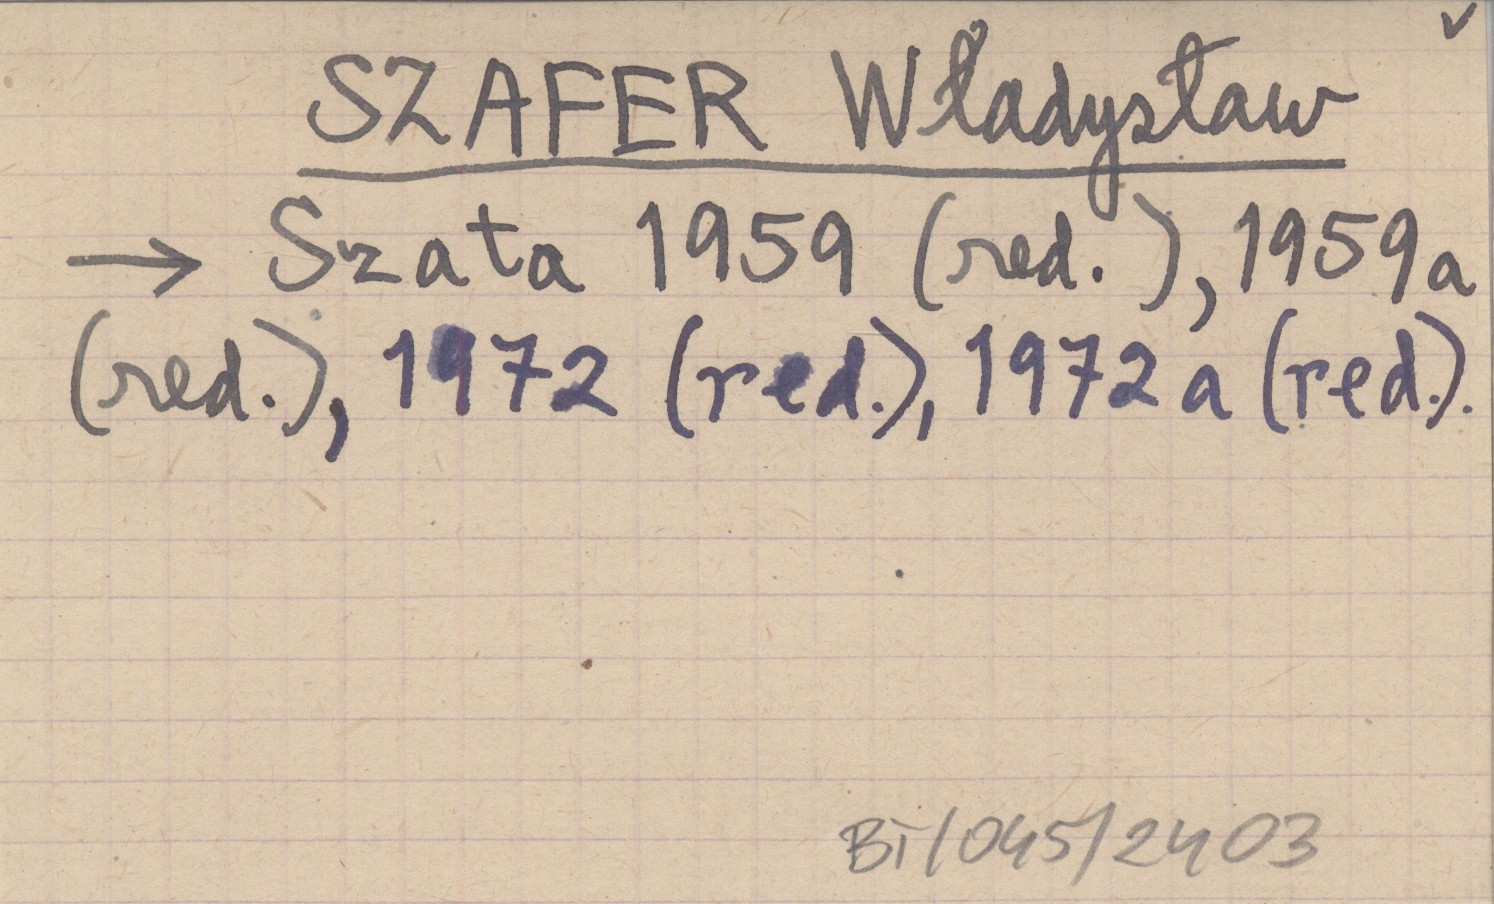 ✓
SZAFER Władysław
→ Szata 1959 (red.), 1959a
(red.), 1972 (red.), 1972a (red.).
BT/045/2403